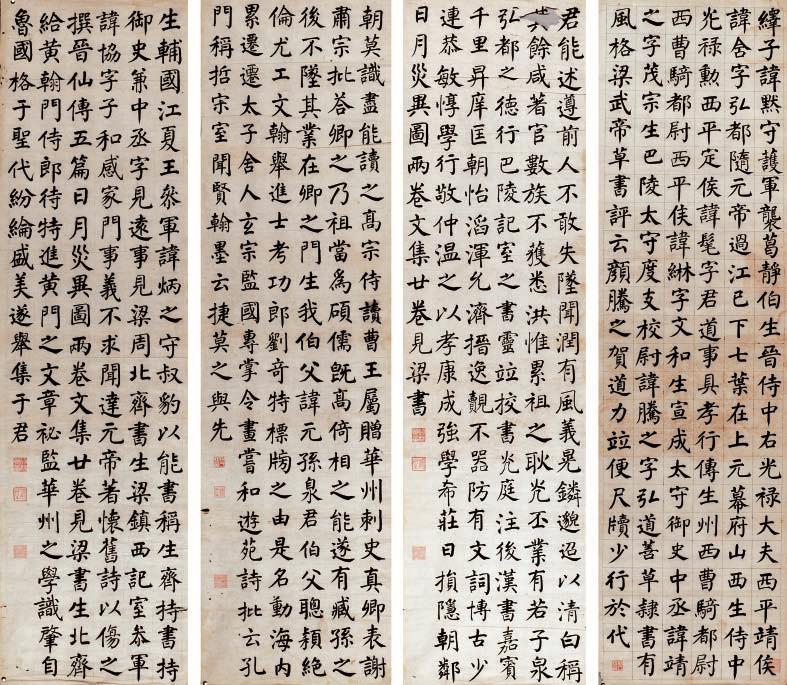 繹子諱默守護軍襲葛靜伯生晉侍中右光祿大夫西平靖侯
諱含字弘都隨元帝過江已下七葉在上元幕府山西生侍中
光祿勳西平定侯諱髦字君道事具孝行傳生州西曹騎都尉
西曹騎都尉西平侯諱綝字文和生宣成太守御史中丞諱靖
之字茂宗生巴陵太守度支校尉諱騰之字弘道善草隸書有
風格梁武帝草書評云顏騰之賀道力竝便尺牘少行於代
君能述遵前人不敢失墜聞潤有風義晃鏻邈迢以清白稱
其餘咸著官數族不獲悉洪惟累祖之耿光丕業有若子泉
弘都之德行巴陵記室之書靈竝挍書光庭注後漢書嘉賓
千里昇庠匡朝怡滔渾允濟搢逸覿不器防有文詞博古少
連恭敏惇學行敬仲温之以孝康成強學希莊日損隱朝鄰
日月災異圖兩卷文集廿卷見梁書
朝莫識盡能讀之高宗侍讀曹王屬贈華州刺史真卿表謝
肅宗批荅卿之乃祖當為碩儒既高倚相之能遂有臧孫之
後不墜其業在卿之門生我伯父諱元孫泉君伯父聰穎絕
倫尤工文翰舉進士考功郎劉奇特標牓之由是名動海內
累遷遷太子舍人玄宗監國專掌令畫嘗和遊苑詩批云孔
門稱哲宋室聞賢翰墨云捷莫之與先
生輔國江夏王叅軍諱炳之守叔豹以能書稱生齊持書持
御史兼中丞字見遠事見梁周北齊書生梁鎮西記室叅軍
諱協字子和感家門事義不求聞達元帝著懷舊詩以傷之
撰晉仙傳五篇日月災異圖兩卷文集廿卷見梁書生北齊
給黃翰門侍郎待特進黃門之文章祕監華州之學識肇自
魯國格于聖代紛綸盛美遂舉集于君